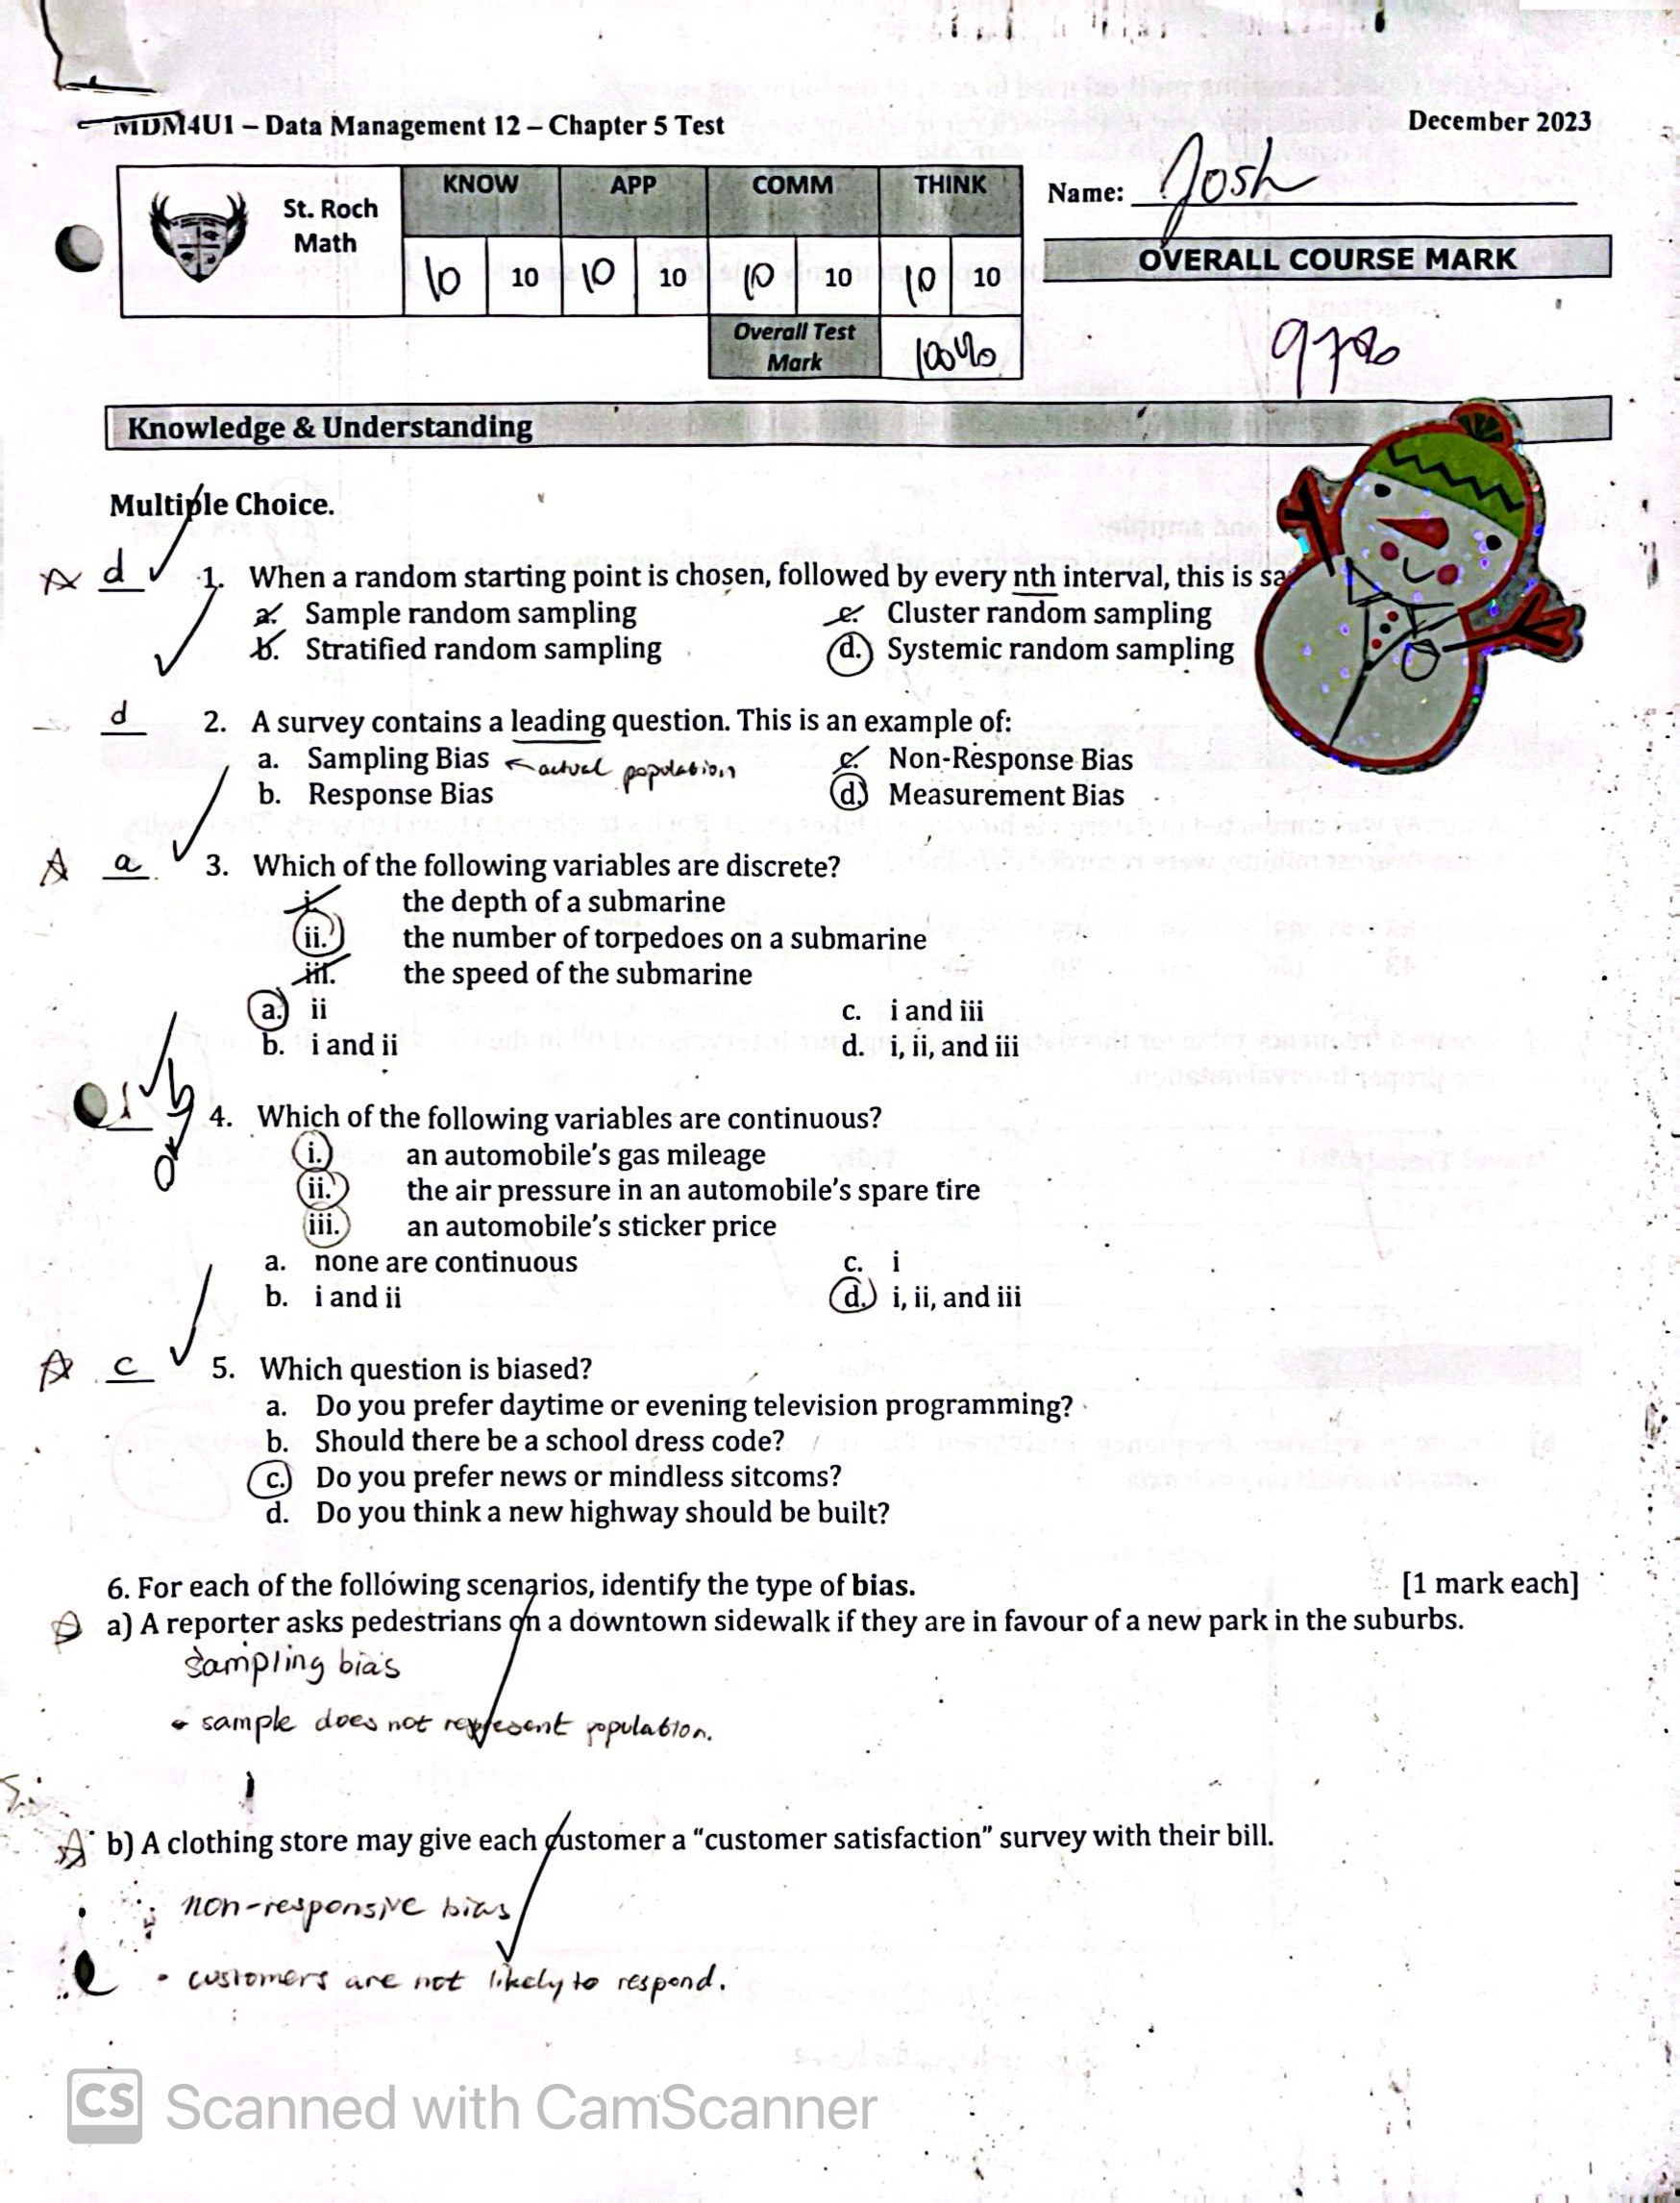 MDM4U1 – Data Management 12 – Chapter 5 Test
December 2023
St. Roch
Math
KNOW APP COMM THINK
10 10 10 10 10 10 10 10
Overall Test
Mark
100%
Name: Josh
OVERALL COURSE MARK
97%
Knowledge & Understanding
Multiple Choice.
d 1. When a random starting point is chosen, followed by every nth interval, this is sa
a. Sample random sampling c. Cluster random sampling
b. Stratified random sampling d. Systemic random sampling
d 2. A survey contains a leading question. This is an example of:
a. Sampling Bias ← actual population c. Non-Response Bias
b. Response Bias d. Measurement Bias
a 3. Which of the following variables are discrete?
i. the depth of a submarine
ii. the number of torpedoes on a submarine
iii. the speed of the submarine
a. ii c. i and iii
b. i and ii d. i, ii, and iii
4. Which of the following variables are continuous?
i. an automobile's gas mileage
ii. the air pressure in an automobile's spare tire
iii. an automobile's sticker price
a. none are continuous c. i
b. i and ii d. i, ii, and iii
c 5. Which question is biased?
a. Do you prefer daytime or evening television programming?
b. Should there be a school dress code?
c. Do you prefer news or mindless sitcoms?
d. Do you think a new highway should be built?
6. For each of the following scenarios, identify the type of bias. [1 mark each]
a) A reporter asks pedestrians on a downtown sidewalk if they are in favour of a new park in the suburbs.
sampling bias
• sample does not represent population.
b) A clothing store may give each customer a “customer satisfaction” survey with their bill.
non-responsive bias
• customers are not likely to respond.
CS Scanned with CamScanner